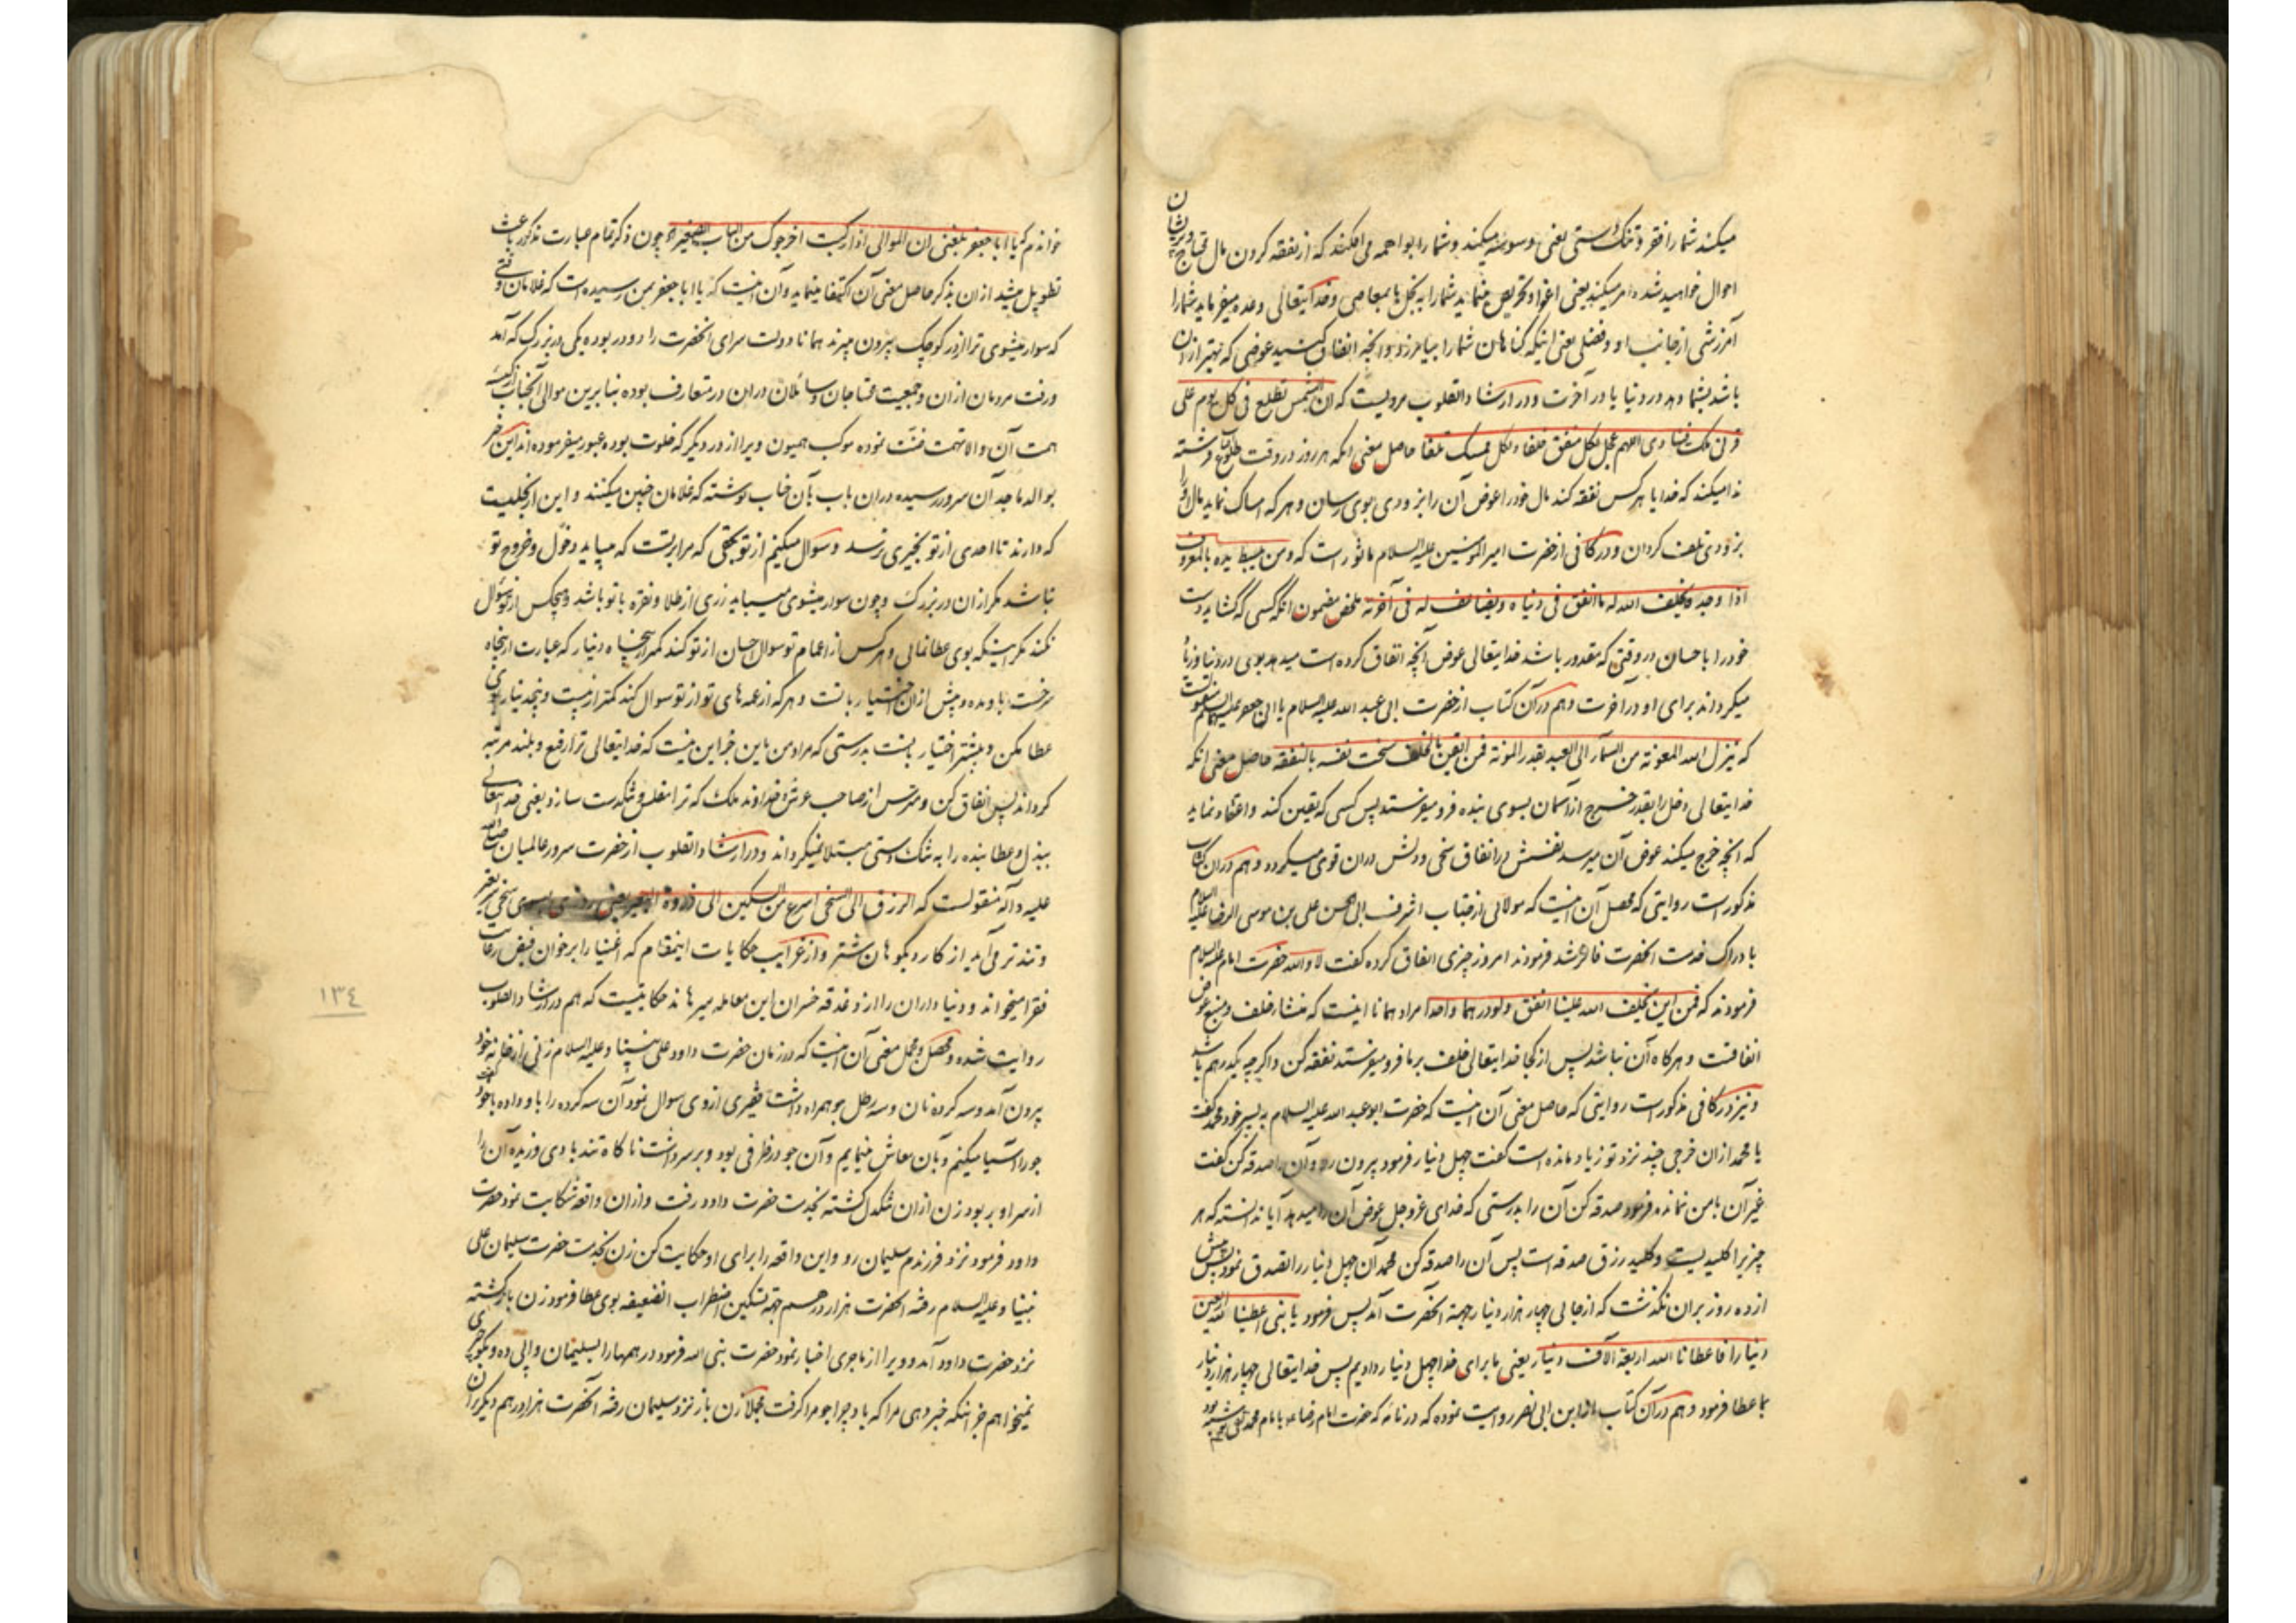 میکند شما را فقر و تنک دستی یعنی وسوسه میکند و شما را بواهمه می افکند که از نفقه کردن مال محتاج و پریشان
احوال خواهید شد و امر میکند یعنی اغوا و تحریص مینماید شما را به بخل یا بمعاصی و خدایتعالی وعده میفرماید شما را
آمرزشی از جانب او و فضلی یعنی اینکه کناهان شما را بیامرزد و بر انچه انفاق کنید عوضی که بهتر از ان
باشد بشما دهد در دنیا یا در آخرت و در ارشاد القلوب مرویست که ان الشمس تطلع فی کل یوم علی
قرنی ملک ینادی اللهم عجل لکل منفق خلفا و لکل ممسک تلفا حاصل معنی انکه هر روز در وقت طلوع آفتاب فرشته
ندا میکند که خدایا هر کس نفقه کند مال خود را عوض آن را بزودی بوی رسان و هر که امساک نماید مال او را
بزودی تلف کردان و در کافی از حضرت امیر المؤمنین علیه السلام ماثور است که و من یبسط یده بالمعروف
اذا وجده یخلف الله له ما انفق فی دنیاه و یضاعف له فی آخرته ملخص مضمون انکه کسی که کشاید دست
خود را باحسان در وقتی که مقدور باشد خدایتعالی عوض آنچه انفاق کرده است میدهد بوی در دنیا و زیاد
میکرداند برای او در آخرت و هم در آن کتاب از حضرت ابی عبد الله علیه السلام
که ینزل الله المعونة من السماء الی العبد بقدر المونة فمن ایقن بالخلف سخت نفسه بالنفقه حاصل معنی انکه
خدایتعالی دخل را بقدر خرج از آسمان بسوی بنده فرو میفرستد پس کسی که یقین کند و اعتقاد نماید
که انچه خرج میکند عوض آن میرسد نفسش در انفاق سخی و دلش در ان قوی میکردد و هم در ان کتاب
مذکور است روایتی که محصل آن اینست که مولائی از جناب اشرف ابی الحسن علی بن موسی الرضا علیه السلام
بادراک خدمت انحضرت فائز شد فرمودند امروز چیزی انفاق کرده گفت لا والله حضرت امام علیه السلام
فرمودند که فمن این یخلف الله علینا انفق و لو درهما واحدا مراد همانا اینست که منشاء خلف و منبع عوض
انفاقست و هرکاه آن نباشد پس از کجا خدایتعالی خلف بر ما فرو میفرستد نفقه کن و اکر چه یک درهم باشد
و نیز در کافی مذکور است روایتی که حاصل معنی آن اینست که حضرت ابو عبد الله علیه السلام به پسر خود محمد گفت
یا محمد از ان خرجی چند نزد تو زیاد مانده است گفت چهل دینار فرمود بیرون رو و آن را صدقه کن گفت
غیر آن با من نمانده فرمود صدقه کن آن را بدرستی که خدای عز و جل عوض آن را میدهد آیا ندانسته که هر
چیز را کلیدیست و کلید رزق صدقه است پس آن را صدقه کن محمد آن چهل دینار را تصدق نمود پس بیش
از ده روز بران نکذشت که از جائی چهار هزار دینار بجهة انحضرت آمد پس فرمود یا بنی اعطینا لله اربعین
دینارا فاعطانا الله اربعة آلاف دینار یعنی ما برای خدا چهل دینار دادیم پس خدایتعالی چهار هزار دینار
بما عطا فرمود و هم در آن کتاب ابن ابی نصر روایت نموده که در نامه که حضرت امام رضا بامام محمد تقی نوشته بود
خواندم که یا ابا جعفر بلغنی ان الموالی اذا رکبت اخرجوک من الباب الصغیر چون ذکر تمام عبارت مذکور باعث
تطویل میشد از ان بذکر حاصل معنی آن اکتفا مینماید و آن اینست که یا ابا جعفر بمن رسیده است که غلامان وقتی
که سوار میشوی ترا از در کوچک بیرون میبرند همانا دولت سرای انحضرت را دو در بوده یکی در بزرک که آمد
و رفت مردمان از ان و جمعیت محتاجان و سائلان دران در متعارف بوده بنابرین موالی آنجناب
همت آن والا نهمت نموده موکب همیون ویرا از در دیگر که خلوت بوده عبور میفرموده اند این خبر
بوالد ماجد آن سرور رسیده در ان باب بآن جناب نوشته که غلامان چنین میکنند و این از بخلیست
که دارند تا احدی از تو بخیری نرسد و سوال میکنم از تو بحقی که مرا بر تست که میباید دخول و خروج تو
نباشد مکر از ان در بزرک و چون سوار میشوی میباید زری از طلا و نقره با تو باشد و هیچکس از تو سؤال
نکند مکر اینکه بوی عطا نمائی و هر کس از اعمام تو سوال احسان از تو کند کمتر از پنجاه دینار که عبارت از پنجاه
سرخست باو مده و بیش از ان اختیار با تست و هر که از عمه های تو از تو سوال کند کمتر از بیست و پنج دینار بوی
عطا مکن و بیشتر اختیار با تست بدرستی که مراد من باین جز این نیست که خدایتعالی ترا رفیع و بلند مرتبه
کرداند پس انفاق کن و مترس از صاحب عرش خداوند ملک که ترا مفلس و تنکدست سازد یعنی خدایتعالی
ببذل و عطا بنده را به تنک دستی مبتلا نمیکرداند و در ارشاد القلوب از حضرت سرور عالمیان صلی الله
علیه و آله منقولست که الرزق الی السخی اسرع من السکین الی ذروة البعیر یعنی روزی بسوی سخی سریعتر
و تند تر می آید از کارد بکوهان شتر و از غرایب حکایات اینمقام که اغنیا را بر خوان فیض رعایت
فقرا میخواند و دنیاداران را از دغدغه خسران این معامله میرهاند حکایتیست که هم در ارشاد القلوب
روایت شده و محصل و مجمل معنی آن اینست که در زمان حضرت داود علی نبینا و علیه السلام زنی از خانه خود
بیرون آمد و سه کرده نان و سه رطل جو همراه داشت فقیری از وی سوال نمود آن سه کرده را باو داده با خود گفت
جو را آسیا میکنم و بآن معاش مینمایم و آن جو در ظرفی بود و بر سر داشت ناکاه تند بادی وزیده آن را
از سر او بر بود زن از ان تنکدل کشته بخدمت حضرت داود رفت و از ان واقعه شکایت نمود حضرت
داود فرمود نزد فرزندم سلیمان رو و این واقعه را برای او حکایت کن زن بخدمت حضرت سلیمان علی
نبینا و علیه السلام رفته انحضرت هزار درهم بجهة تسکین اضطراب انضعیفه بوی عطا فرمود زن بازکشته
نزد حضرت داود آمد و ویرا از ماجری اخبار نمود حضرت نبی الله فرمود درهمها را بسلیمان واپس ده و بکو چیزی
نمیخواهم جز آنکه خبر دهی مرا که باد چرا جو مرا کرفت مجملا زن باز نزد سلیمان رفته آنحضرت هزار درهم دیگر بران
١٣٤